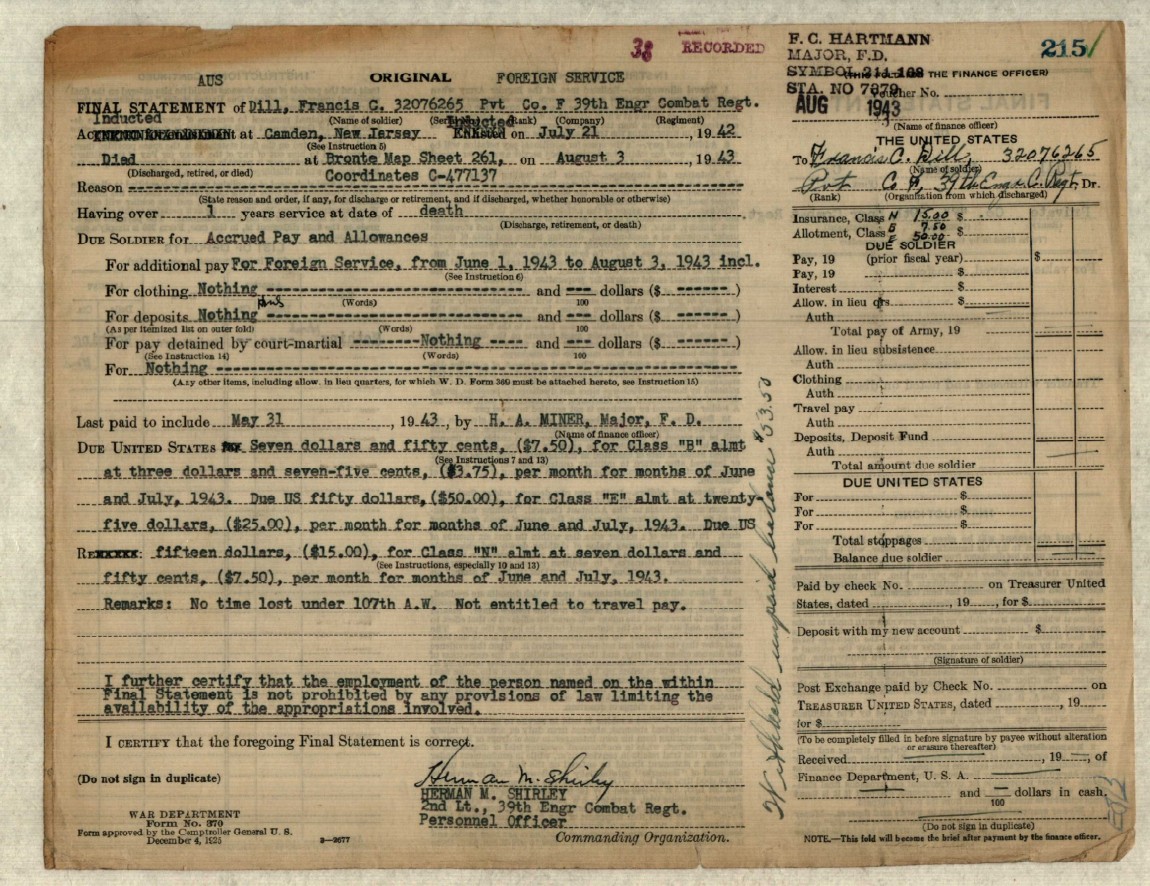 38 RECORDED
AUS ORIGINAL FOREIGN SERVICE
FINAL STATEMENT of Dill, Francis C. 32076265 Pvt Co. F 39th Engr Combat Regt.
(Name of soldier) (Rank) (Company) (Regiment)
Inducted at Camden, New Jarsey Inducted Enlisted on July 21, 1942
(See Instruction 5)
Died at Bronte Map Sheet 261, on August 3, 1943
(Discharged, retired, or died) Coordinates C-477137
Reason
(State reason and order, if any, for discharge or retirement, and if discharged, whether honorable or otherwise)
Having over 1 years service at date of death.
(Discharge, retirement, or death)
DUE SOLDIER for Accrued Pay and Allowances
For additional pay For Foreign Service, from June 1, 1943 to August 3, 1943 incl.
(See Instruction 6)
For clothing Nothing and --- dollars ($ ------)
(Words) 100
For deposits Nothing and --- dollars ($ ------)
(As per itemized list on outer fold) (Words) 100
For pay detained by court-martial --------Nothing ---- and --- dollars ($ ------)
(See Instruction 14) (Words) 100
For Nothing
(Any other items, including allow. in lieu quarters, for which W. D. Form 369 must be attached hereto, see Instruction 15)
Last paid to include May 31, 1943, by H. A. MINER, Major, F. D.
(Name of finance officer)
DUE UNITED STATES Seven dollars and fifty cents, ($7.50), for Class "B" almt
(See Instructions 7 and 13)
at three dollars and seven-five cents, ($3.75), per month for months of June
and July, 1943. Due US fifty dollars, ($50.00), for Class "E" almt at twenty-
five dollars, ($25.00), per month for months of June and July, 1943. Due US
fifteen dollars, ($15.00), for Class "N" almt at seven dollars and
(See Instructions, especially 10 and 13)
fifty cents, ($7.50), per month for months of June and July, 1943.
Remarks: No time lost under 107th A.W. Not entitled to travel pay.
I further certify that the employment of the person named on the within
Final Statement is not prohibited by any provisions of law limiting the
availability of the appropriations involved.
I CERTIFY that the foregoing Final Statement is correct.
(Do not sign in duplicate) Herman M. Shirley
HERMAN M. SHIRLEY
2nd Lt., 39th Engr Combat Regt.
Personnel Officer
Commanding Organization.
WAR DEPARTMENT
Form No. 370
Form approved by the Comptroller General U. S.
December 4, 1925
3—2677
Withheld unpaid balance $53.50
F. C. HARTMANN
MAJOR, F.D.
SYMBOL 211-168 THE FINANCE OFFICER)
STA. NO 7879
215
Voucher No.
AUG 1943
(Name of finance officer)
THE UNITED STATES
To Francis C. Dill, 32076265
(Name of soldier)
Pvt Co F, 39th Engr C. Regt, Dr.
(Rank) (Organization from which discharged)
Insurance, Class N 15.00 $
Allotment, Class B 7.50 $
E 50.00
DUE SOLDIER
Pay, 19 (prior fiscal year) $
Pay, 19 $
Interest $
Allow. in lieu qrs. $
Auth
Total pay of Army, 19
Allow. in lieu subsistence
Auth
Clothing
Auth
Travel pay
Auth
Deposits, Deposit Fund
Auth
Total amount due soldier
DUE UNITED STATES
For $
For $
For $
Total stoppages
Balance due soldier
Paid by check No. on Treasurer United
States, dated , 19 , for $
Deposit with my new account $
(Signature of soldier)
Post Exchange paid by Check No. on
TREASURER UNITED STATES, dated , 19
for $
(To be completely filled in before signature by payee without alteration
or erasure thereafter)
Received , 19 , of
Finance Department, U. S. A.
and --- dollars in cash.
100
(Do not sign in duplicate)
NOTE.—This fold will become the brief after payment by the finance officer.